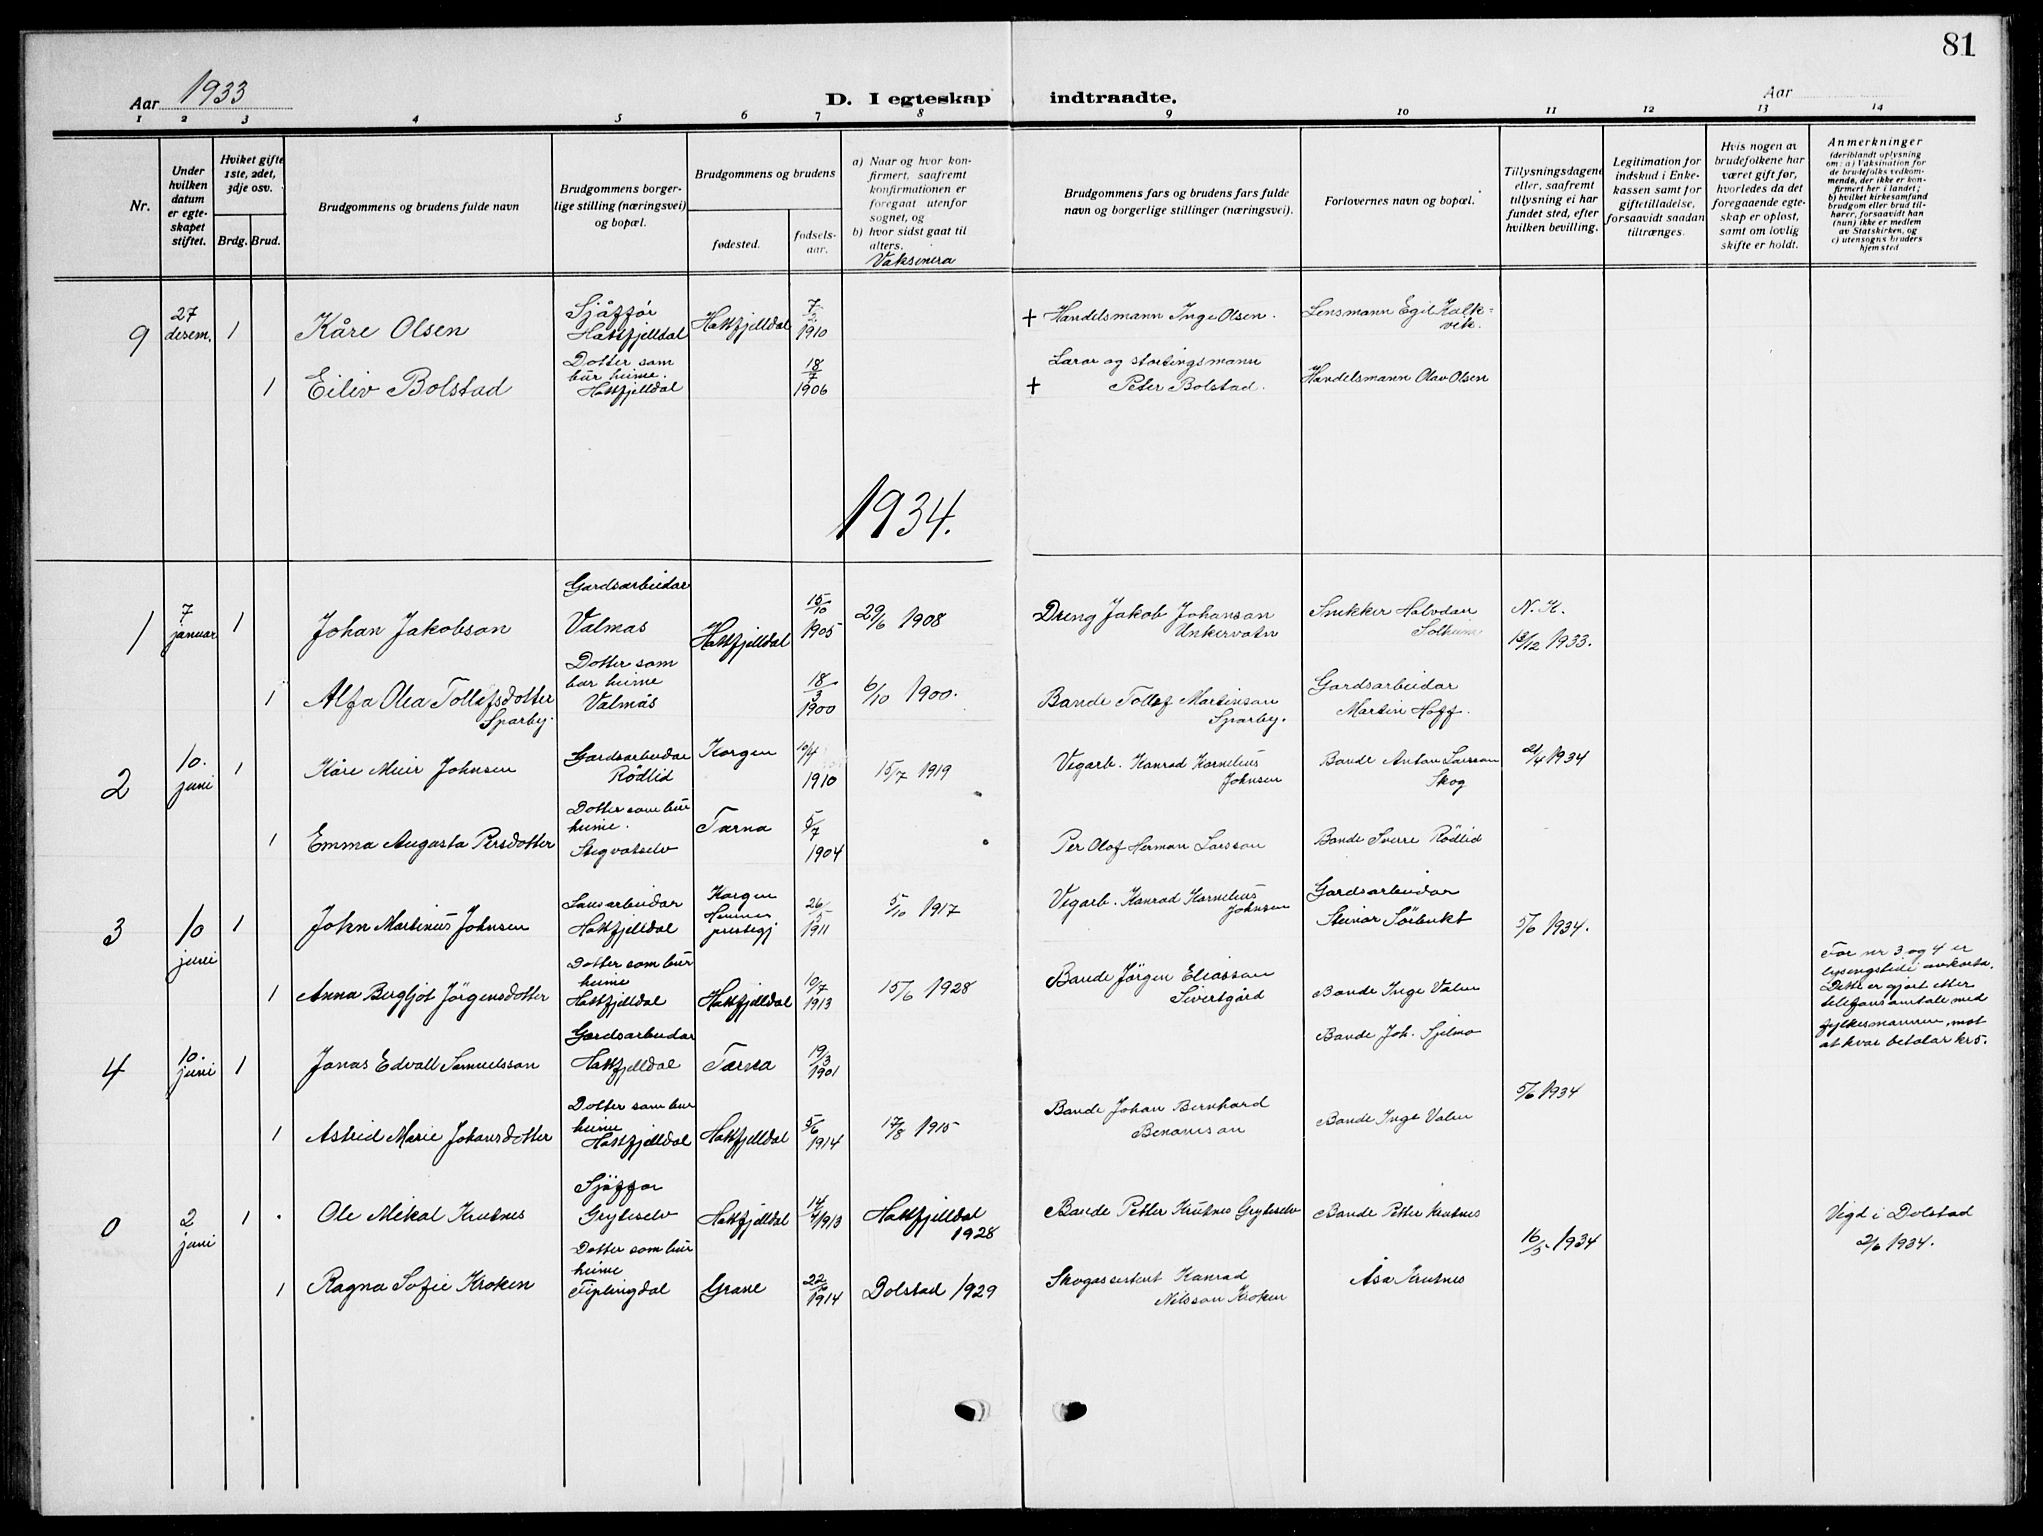 81
Aar 1933
D. I egteskap indtraadte.
Aar
1 2 3 4 5 6 7 8 9 10 11 12 13 14
Nr.
Under
hvilken
datum
er egte-
skapet
stiftet.
Hviket gifte
1ste, 2det,
3dje osv.
Brdg. Brud.
Brudgommens og brudens fulde navn
Brudgommens borger-
lige stilling (næringsvei)
og bopæl.
Brudgommens og brudens
fødested.
fødsels-
aar.
a) Naar og hvor kon-
firmert, saafremt
konfirmationen er
foregaat utenfor
sognet, og
b) hvor sidst gaat til
alters.
Vaksinera
Brudgommens fars og brudens fars fulde
navn og borgerlige stillinger (næringsvei).
Forlovernes navn og bopæl.
Tillysningsdagene
eller, saafremt
tillysning ei har
fundet sted, efter
hvilken bevilling.
Legitimation for
indskud i Enke-
kassen samt for
giftetilladelse,
forsaavidt saadan
tiltrænges.
Hvis nogen av
brudefolkene har
været gift før,
hvorledes da det
foregaaende egte-
skap er opløst,
samt om lovlig
skifte er holdt.
Anmerkninger
(deriblandt oplysning
om: a) Vaksination for
de brudefolks vedkom-
mende, der ikke er kon-
firmert her i landet;
b) hvilket kirkesamfund
brudgom eller brud til-
hører, forsaavidt han
(hun) ikke er medlem
av Statskirken, og
c) utensogns bruders
hjemsted
9
27
desem.
1
Kåre Olsen
Sjåffør
Hattfjelldal
Hattfjelldal
1910
† Handelsmann Inge Olsen.
Lensmann Egil Kalk-
vik.
1
Eiliv Bolstad
Dotter som
bur heime.
Hattfjelldal
18/7
1906
Lærar og stortingsmann
† Peter Bolstad.
Handelsmann Olav Olsen
1934.
1
7
januar
1
Johan Jakobson
Gardsarbeidar
Valmås
Hattfjelldal
15/10
1905
29/6 1908
Dreng Jakob Johanson
Unkervatn
Snikker Halvdan
Solheim
N. K.
13/12 1933.
1
Alfa Olea Tollefsdotter
Sparby.
Dotter som
bur heime
Valmås
18/3
1900
6/10 1900.
Bonde Tollef Martinson
Sparby.
Gardsarbeidar
Martin Hoff.
2
10.
juni
1
Kåre Meier Johnsen
Gardsarbeidar
Rødlid
Korgen
10/4
1910
15/7 1919
Vegarb. Konrad Kornelius
Johnsen
Bonde Anton Larsson
Skog
21/4 1934
1
Emma Augusta Persdotter
Dotter som bur
heime.
Stegvatselv
Tärna
5/7
1904
Per Olof Herman Larsson
Bonde Sverre Rødlid
3
10
juni
1
John Martinus Johnsen
Lausarbeidar
Hattfjelldal
Korgen
Hemnes
prestegj
26/5
1911
5/10 1917
Vegarb. Konrad Kornelius
Johnsen
Gardsarbeidar
Steinar Sörbukt
5/6 1934.
1
Anna Bergljot Jörgensdotter
Dotter som bur
heime
Hattfjelldal
Hattfjelldal
10/7
1913
15/6 1928
Bonde Jörgen Eliasson
Sivertgård
Bonde Inge Valen
For nr 3 og 4 er
lysingstidi avkorta.
Dette er gjort etter
telefonsamtale med
fylkesmannen, mot
at kvar betalar kr 5.
4
10.
juni
1
Jonas Edvall Samuelsson
Gardsarbeidar
Hattfjelldal
Tärna
19/3
1901
Bonde Joh. Sjelmo
5/6 1934
1
Astrid Marie Johansdotter
Dotter som bur
heime
Hattfjelldal
Hattfjelldal
5/6
1914
17/8 1915
Bonde Johan Bernhard
Benonison
Bonde Inge Valen
0
2
juni
1
Ole Mikal Krutnes
Sjåffør
Gryteselv
Hattfjelldal
14/4 1913
Hattfjelldal
1928
Bonde Petter Krutnes Gryteselv
Bonde Petter Krutnes
16/5 1934
Vigd i Dolstad
2/6 1934.
1
Ragna Sofie Kroken
Dotter som bur
heime
Fiplingdal
Grane
1914
Dolstad 1929
Skogassistent Konrad
Nilsson Kroken
Åsa Krutnes